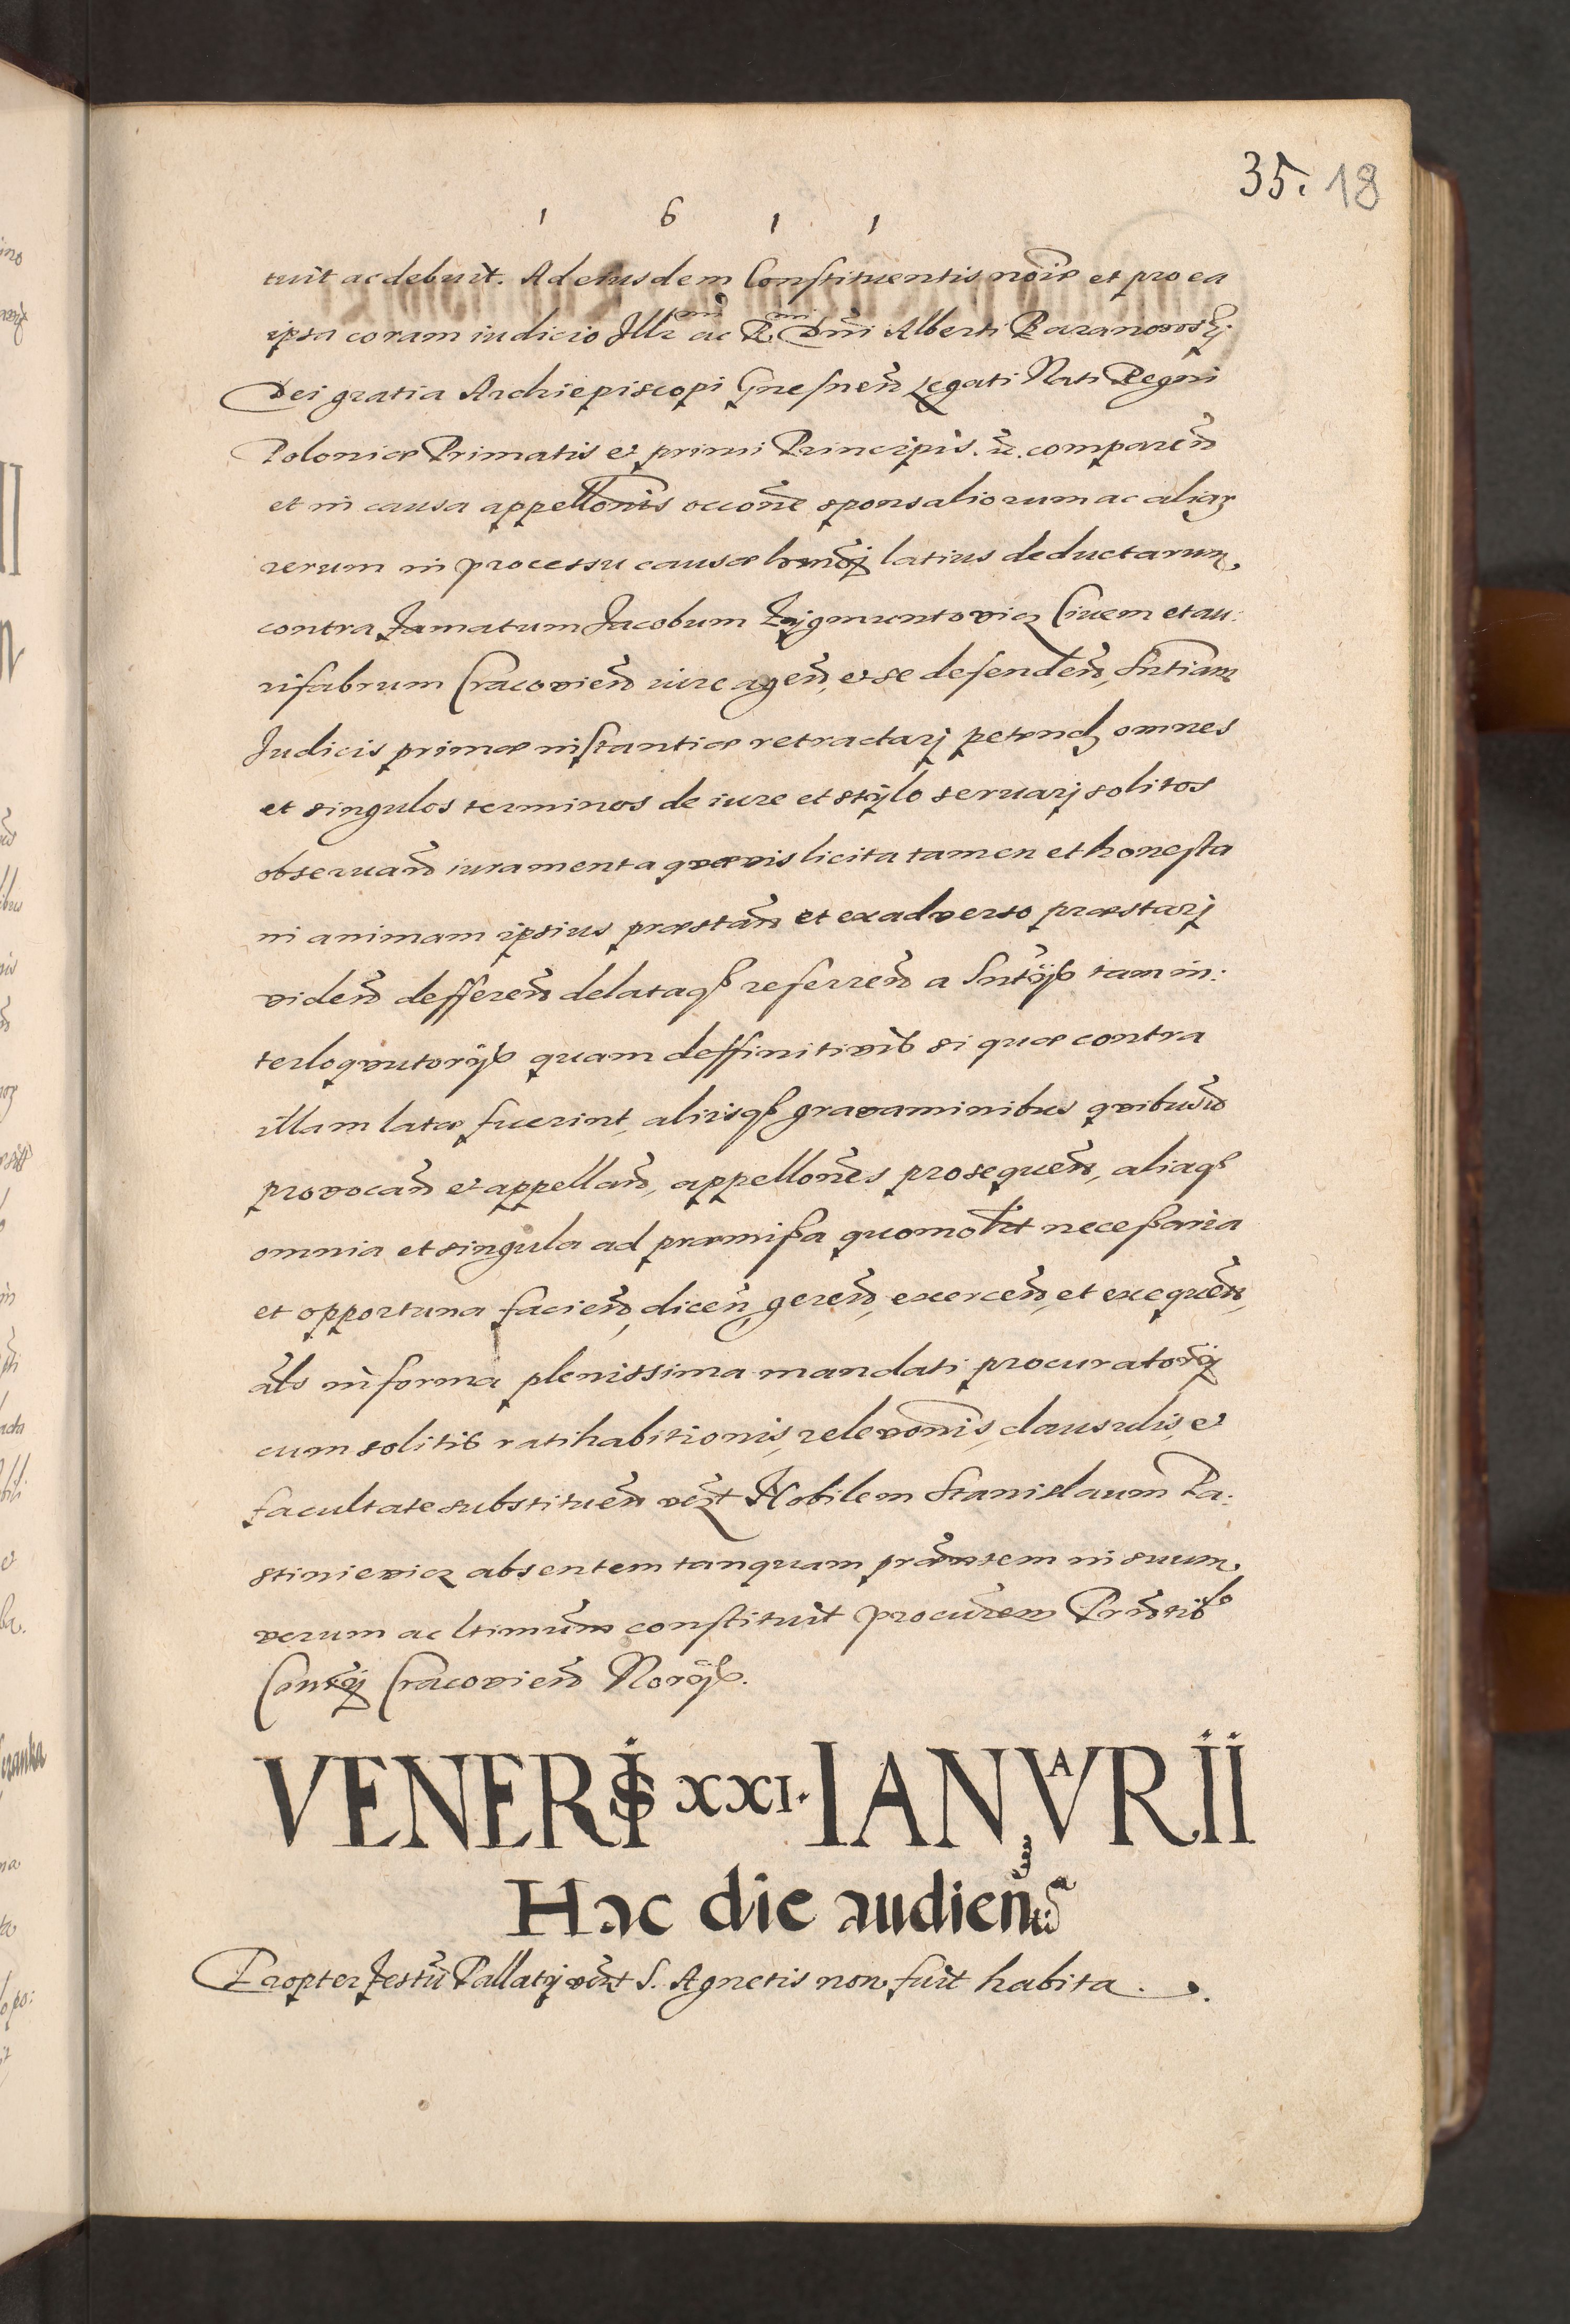 35. 18
1 6 1 1
tuit ac debuit. Ad eiusdem Constituentis nõie et pro ea
ipsa coram iudicio Illr̃ mi ac R. mi Dñi Alberti Baranowsk̃j
Dei gratia Archiepiscopi Gnesneñ Legati Nati Regni
Poloniæ Primatis et primi Principis. ẽ. compareñ
et in causa appell̃onis occõne sponsaliorum ac aliarz
rerum in processu causæ latius deductarum
contra Famatum Jacobum Zÿgmuntovicz Civem et au:
rifabrum Cracovieñ iure ageñ, et se defendeñ, Sñtiam
Judicis primæ instantiæ retractarj petend̃ omnes
et singulos terminos de iure et stÿlo servarj solitos
observañ iuramenta quævis licita tamen et honesta
in animam ipsius præstañ et ex adverso præstarj
videñ deffereñ delataqß referreñ a Sñtijß tam in:
terloqvutorijß quam deffinitivis si quæ contra
illam latæ fuerint, aliisqß gravaminibus qvibusũ
provocañ et appellañ, appellõnes prosequeñ, aliaqß
omnia et singula ad præmißa quomoɫt neceßaria
et opportuna facieñ, diceñ, gereñ, exerceñ, et exequeñ,
als̃ in forma plenissima mandati procuratorij
cum solitis ratihabitionis, relevõnis, clausulis, et
facultate substitueñ vẽzt Nobilem Stanislaum Pa:
stinievicz absentem tanquam præñtem in suum
verum ac ltimũm constituit procurem̃ Prñtib lo
Cracovieñ Norÿß.
VENERIS XXI. IANUARII
Hac die audieñtia
Propter Festũ Pallatij vẽzt S. Agnetis non fuit habita.